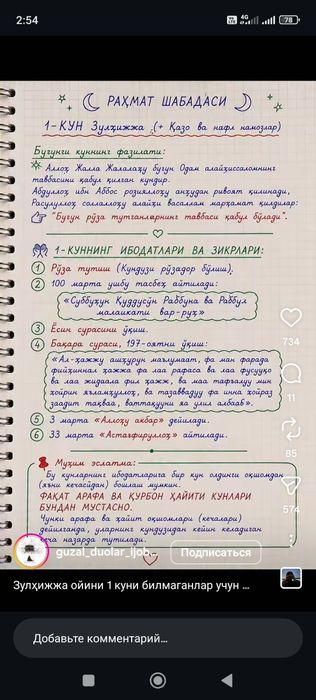 2:54
4G
78
РАҲМАТ ШАБАДАСИ
1-КУН Зулҳижжа (+ Қазо ва нафл намозлар)
Бугунги куннинг фазилати:
Аллоҳ Жалла Жалалаҳу бугун Одам алайҳиссаломнинг
тавбасини қабул қилган кундир.
Абдуллоҳ ибн Аббос розияллоҳу анҳудан ривоят қилинади,
Расулуллоҳ соллаллоҳу алайҳи васаллам марҳамат қилдилар:
"Бугун рўза тутганларнинг тавбаси қабул бўлади".
1-КУННИНГ ИБОДАТЛАРИ ВА ЗИКРЛАРИ:
1 Рўза тутиш (Кундузи рўзадор бўлиш),
2 100 марта ушбу тасбеҳ айтилади:
«Суббуҳун Қуддусўн Раббуна ва Раббул
малаикати вар-руҳ»
3 Ёсин сурасини ўқиш.
4 Бақара сураси, 197-оятни ўқиш:
«Ал-ҳажжу ашҳурун маълумаат, фа ман фарада
фийҳиннал ҳажжа фа лаа рафаса ва лаа фусууқо
ва лаа жидаала фил ҳажж, ва маа тафъалуу мин
хойрин яъламҳуллоҳ, ва тазаввадуу фа инна хойраз
заадит тақваа, ваттақууни яа улил албааб».
5 3 марта «Аллоҳу акбар» дейилади.
6 33 марта «Астағфируллоҳ» айтилади.
Муҳим эслатма:
Бу кунларнинг ибодатларига бир кун олдинги оқшомдан
(яъни кечасидан) бошлаш мумкин.
ФАҚАТ АРАФА ВА ҚУРБОН ҲАЙИТИ КУНЛАРИ
БУНДАН МУСТАСНО.
Чунки арафа ва ҳайит оқшомлари (кечалари)
дейилганда, уларнинг кундузидан кейин келадиган
кеча назарда тутилади.
734
11
85
574
guzal_duolar_ijob...
Подписаться
Зулҳижжа ойини 1 куни билмаганлар учун ...
Добавьте комментарий...